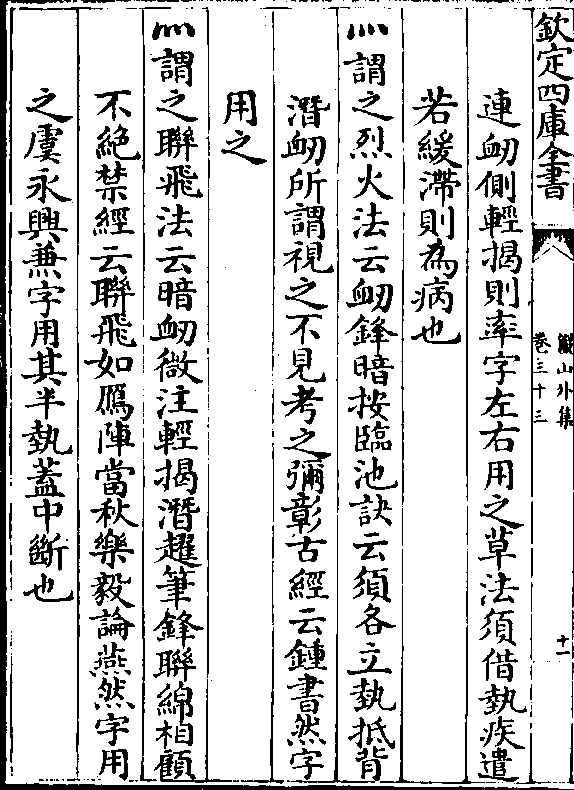 欽定四庫全書
儼山外集
卷三十三
十一
連衂側輕揭則率字左右用之草法須借埶疾遣
若緩滯則為病也
灬謂之烈火法云衂鋒暗按臨池訣云須各立埶抵背
潛衂所謂視之不見考之彌彰古經云鍾書然字
用之
灬謂之聯飛法云暗衂微注輕揭潛趯筆鋒聯綿相顧
不絶禁經云聯飛如鴈陣當秋樂毅論燕然字用
之虞永興無字用其半埶蓋中斷也